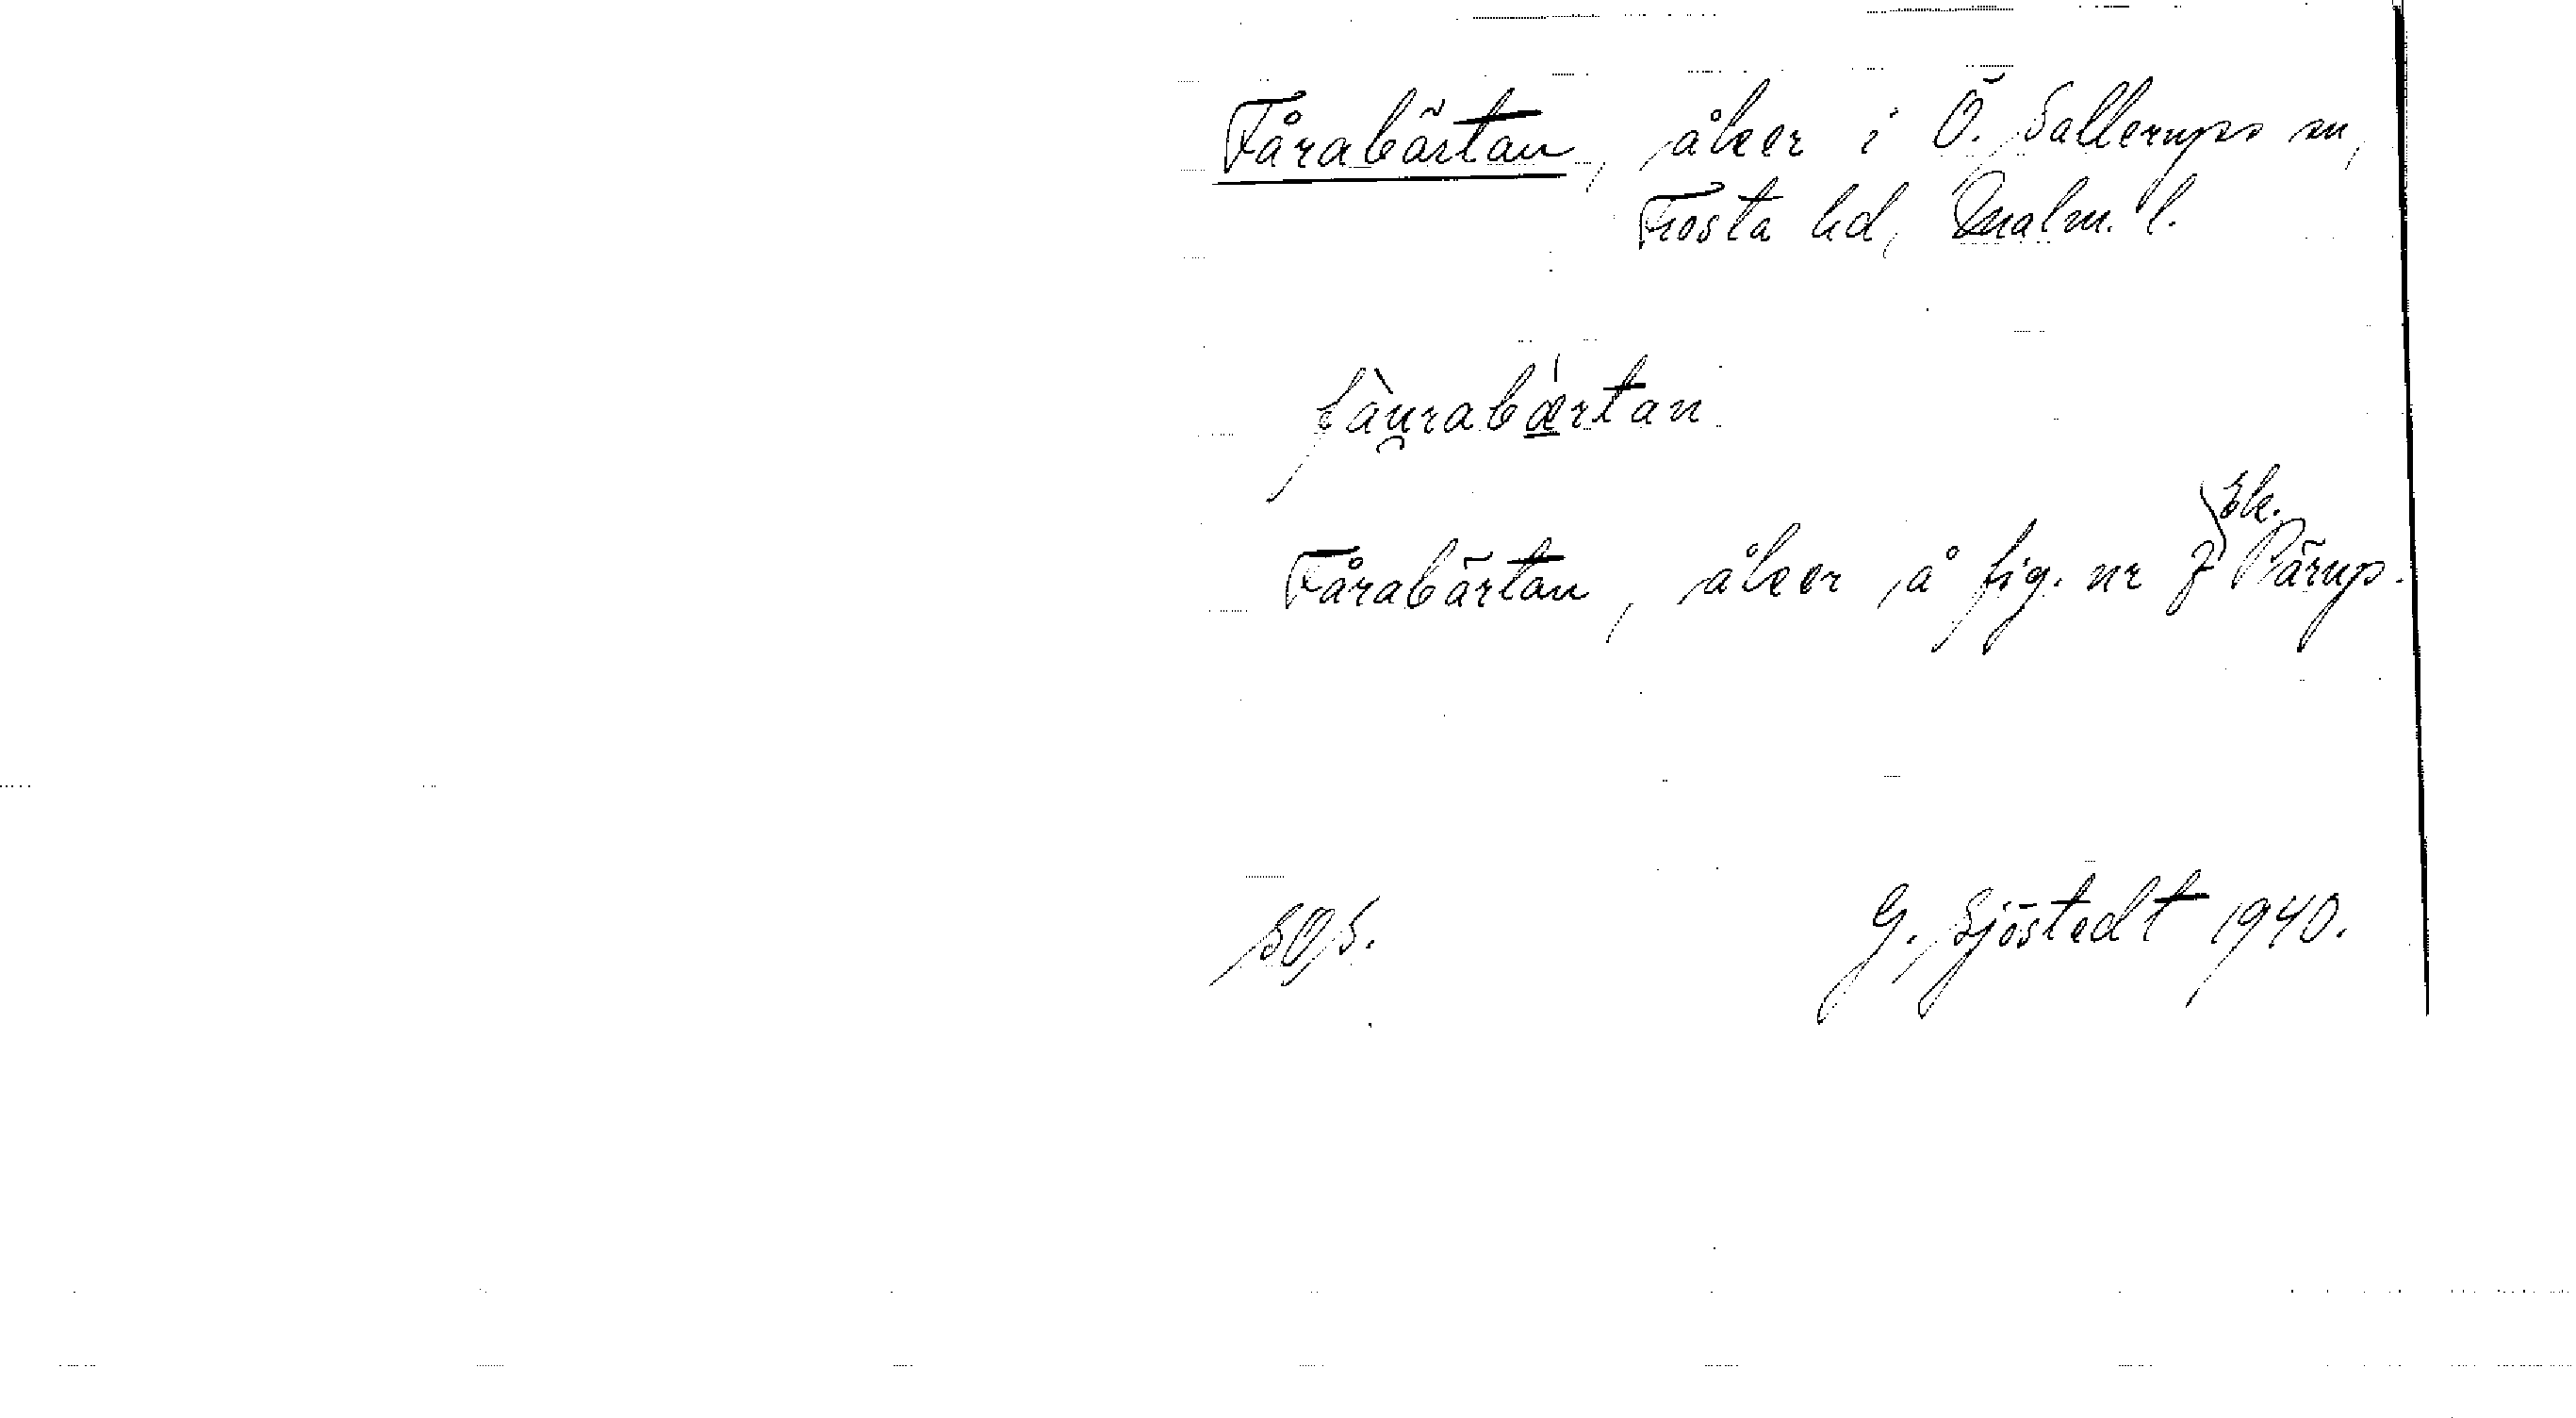 Fårabärtan, åker i Ö. Sallerups sn,
Frosta hd, Malm. l.
fàu̯rabǽ̱rtan
Fårabärtan, åker å fig. nr 7 Ek. Pärup.
G. Sjöstedt 1940.